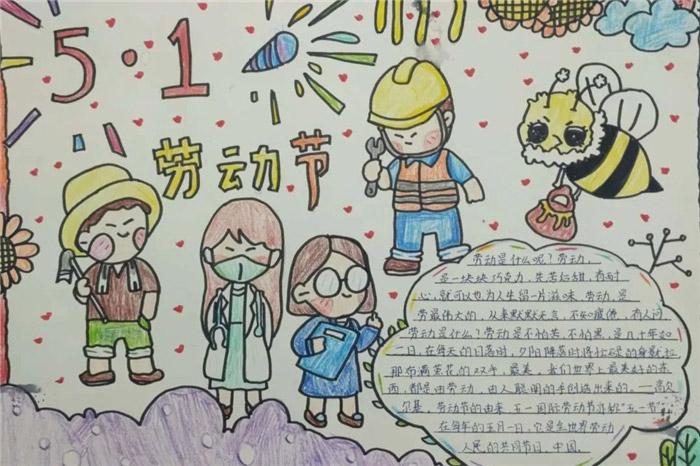 5·1
劳动节
劳动是什么呢？劳动，
是一块块巧克力，先苦后甜，有耐
心，就可以为人生留一片滋味，劳动，是
最伟大的，从来默默无言，不知疲倦，有人问，
劳动是什么？劳动是不怕苦、不怕黑，是几十年如
一日，在每天的日落时，夕阳降落时得
那布满茧花的双手，最美，我们世界上最美好的东
西，都是由劳动，由人聪明的手创造出来的。——高
尔基，劳动节的由来 五一国际劳动节亦称"五一节"
在每年的五月一日，它是全世界劳动
人民的共同节日，中国.